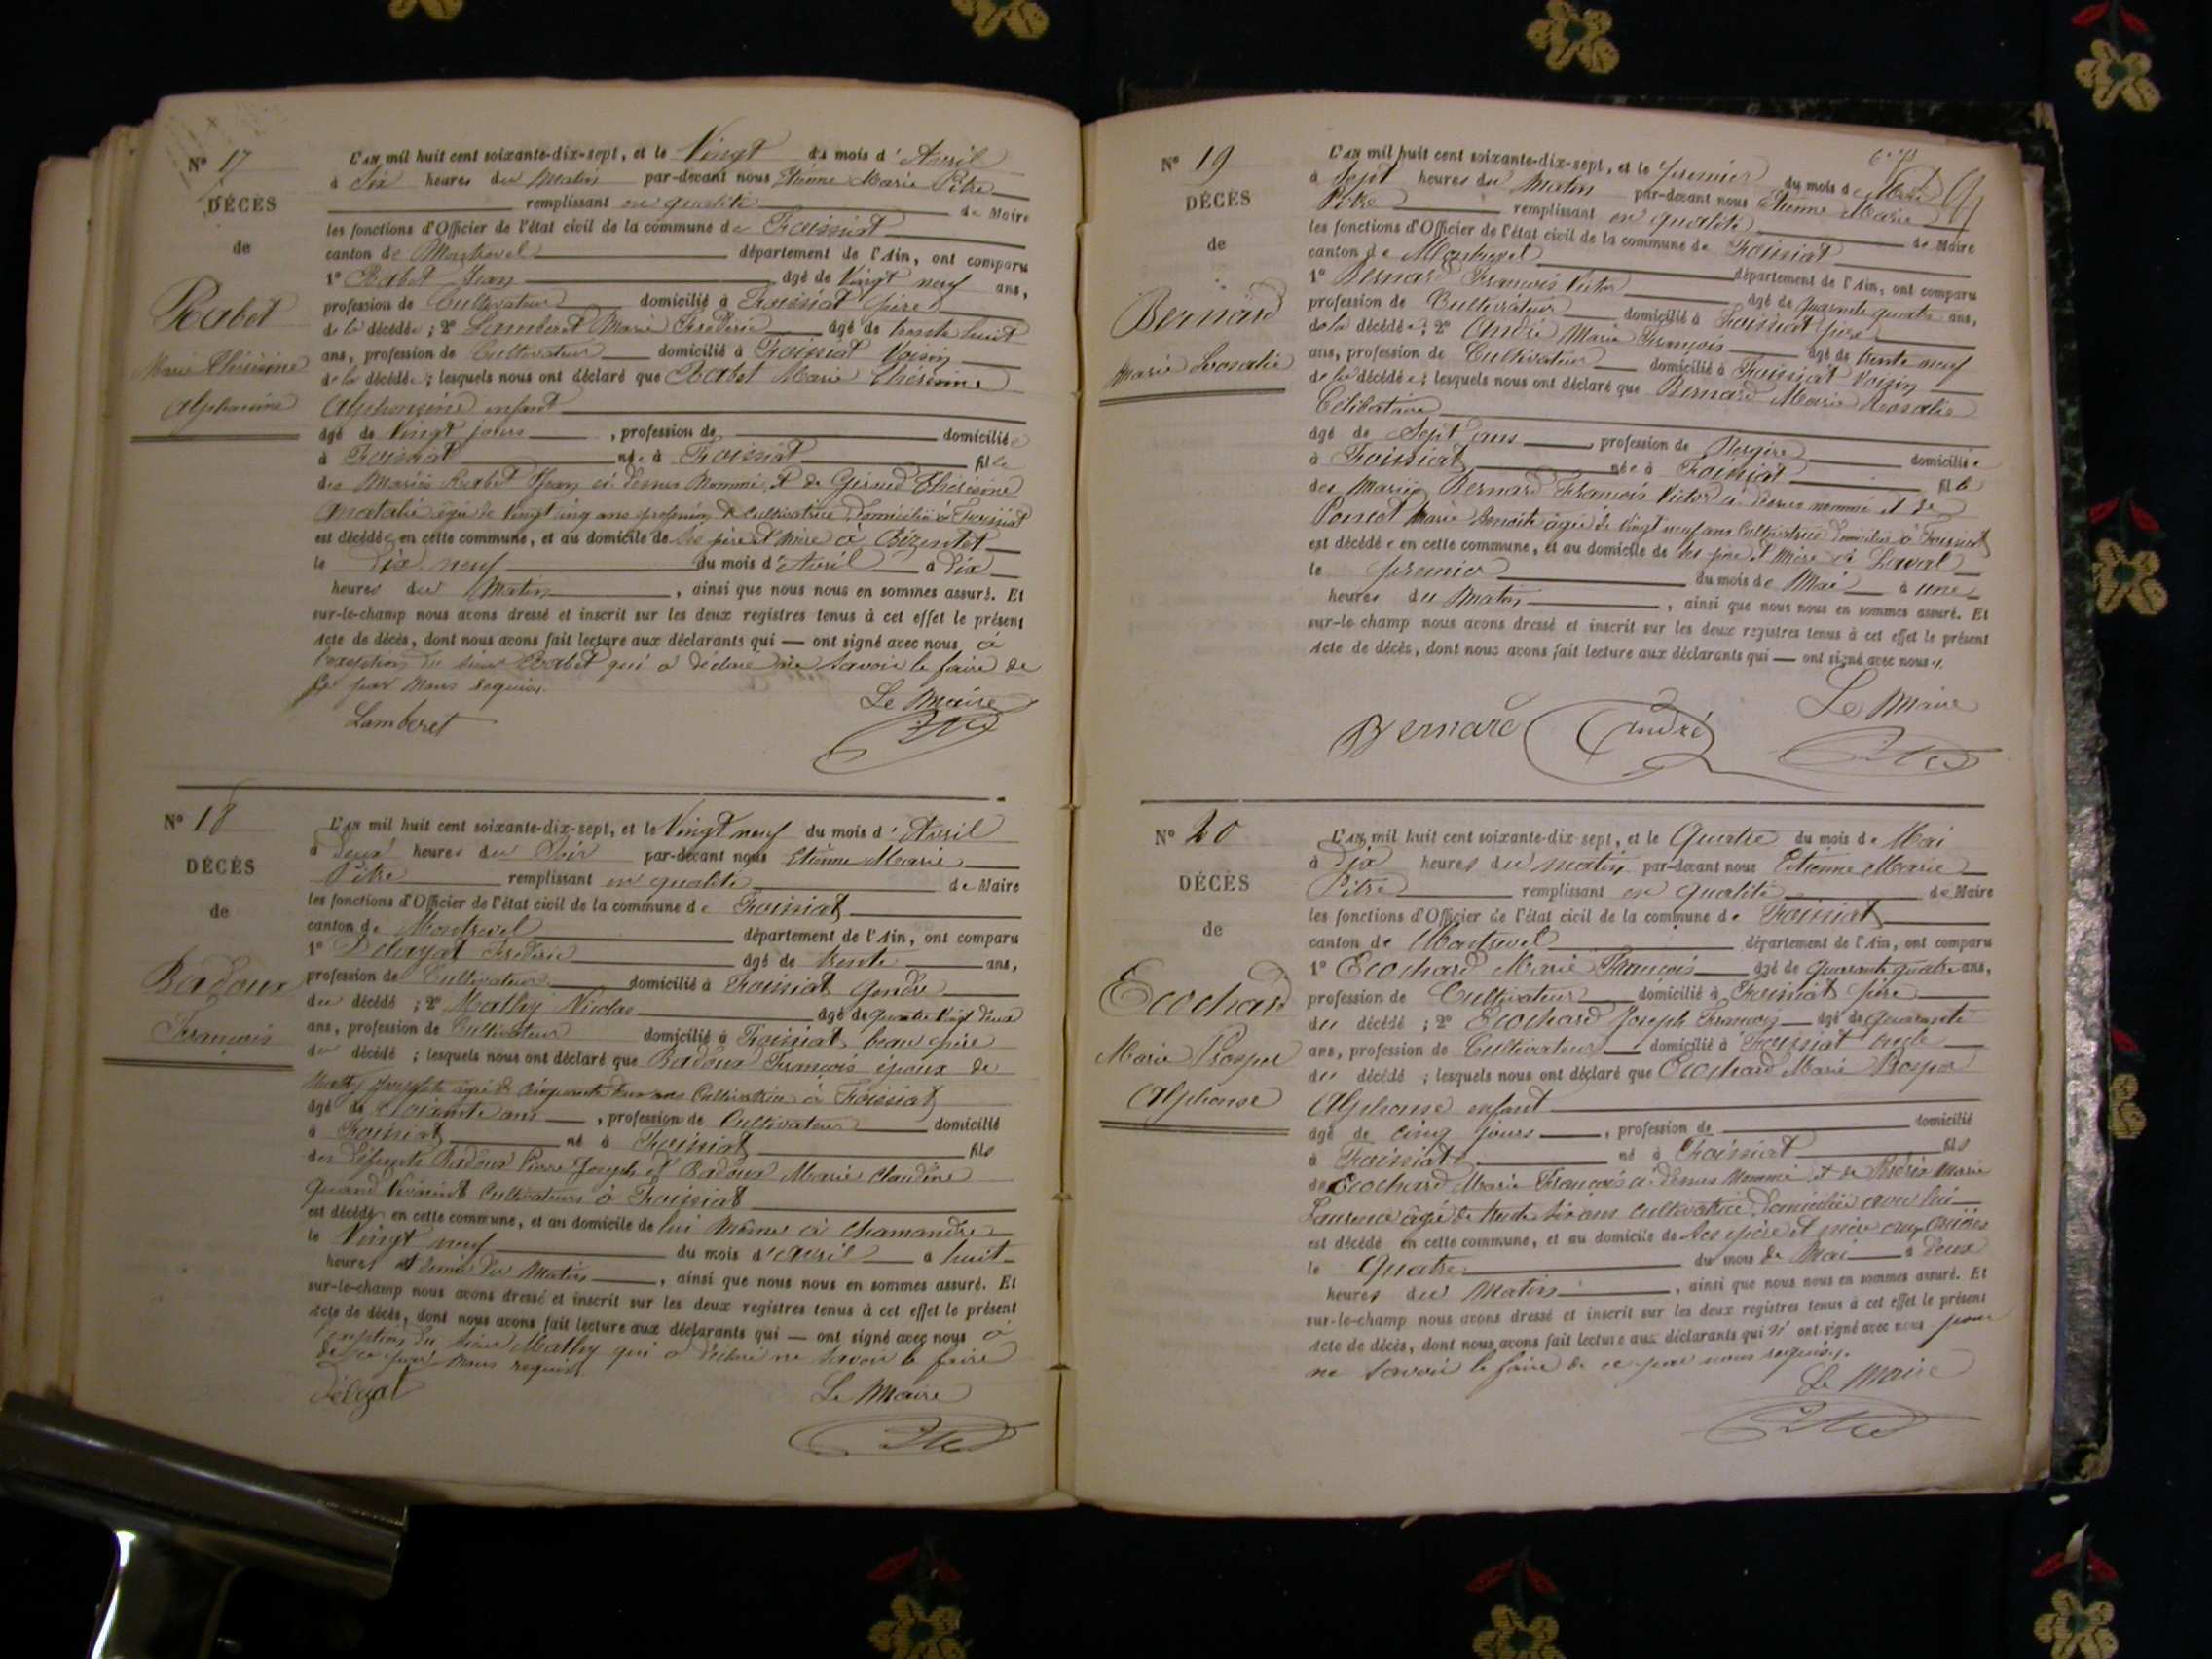 N° 17
DÉCÈS
de
Rabet
Marie Thérésine
Alphonsine
L'AN mil huit cent soixante-dix-sept, et le Vingt du mois d'Avril
à Six heures du Matin par-devant nous Etienne Marie Pitre
remplissant en qualité de Maire
les fonctions d'Officier de l'état civil de la commune de Foissiat
canton de Montrevel département de l'Ain, ont comparu
1° Rabet Jean âgé de Vingt neuf ans,
profession de Cultivateur domicilié à Foissiat père
de la décédée ; 2° Lamberet Marie Frédéric âgé de trente huit
ans, profession de Cultivateur domicilié à Foissiat Voisin
de la décédée ; lesquels nous ont déclaré que Rabet Marie Thérésine
Alphonsine enfant
âgé de Vingt jours , profession de domiciliée
à Foissiat née à Foissiat fille
des Mariés Rabet Jean ci dessus Nommé, et de Giraud Thérésine
Natalie âgée de Vingt cinq ans profession de Cultivatrice domiciliée à Foissiat
est décédée en cette commune, et au domicile de ses père et mère à Bizentet
le Dix neuf du mois d'Avril à Dix
heures du Matin , ainsi que nous nous en sommes assuré. Et
sur-le-champ nous avons dressé et inscrit sur les deux registres tenus à cet effet le présent
Acte de décès, dont nous avons fait lecture aux déclarants qui — ont signé avec nous à
l'exception du sieur Rabet qui a déclaré ne savoir le faire de
ce par nous requis.
Lamberet
Le Maire
N° 18
DÉCÈS
de
Badoux
François
L'AN mil huit cent soixante-dix-sept, et le Vingt neuf du mois d'Avril
à Deux heures du Soir par-devant nous Etienne Marie
Pitre remplissant en qualité de Maire
les fonctions d'Officier de l'état civil de la commune de Foissiat
canton de Montrevel département de l'Ain, ont comparu
1° Delayat Frédéric âgé de trente ans,
profession de Cultivateur domicilié à Foissiat Gendre
du décédé ; 2° Mathy Nicolas âgé de quatre Vingt deux
ans, profession de Cultivateur domicilié à Foissiat beau père
du décédé ; lesquels nous ont déclaré que Badoux François époux de
Mathy âgée de Cinquante ans Cultivatrice à Foissiat
âgé de Soixante ans , profession de Cultivateur domicilié
à Foissiat né à Foissiat fils
des Défunts Badoux Pierre Joseph et Badoux Marie Claudine
Quand Vivaient Cultivateurs à Foissiat
est décédé en cette commune, et au domicile de lui même à Chamandre
le Vingt neuf du mois d'Avril à huit
heures et demie du Matin , ainsi que nous nous en sommes assuré. Et
sur-le-champ nous avons dressé et inscrit sur les deux registres tenus à cet effet le présent
Acte de décès, dont nous avons fait lecture aux déclarants qui — ont signé avec nous à
l'exception du sieur Mathy qui a déclaré ne savoir le faire
de ce par nous requis
Délayat
Le Maire
N° 19
DÉCÈS
de
Bernard
Marie Rosalie
L'AN mil huit cent soixante-dix-sept, et le premier du mois de Mai
à Sept heures du Matin par-devant nous Etienne Marie
Pitre remplissant en qualité de Maire
les fonctions d'Officier de l'état civil de la commune de Foissiat
canton de Montrevel département de l'Ain, ont comparu
1° Bernard François Victor âgé de quarante quatre ans,
profession de Cultivateur domicilié à Foissiat père
de la décédée ; 2° André Marie François âgé de trente neuf
ans, profession de Cultivateur domicilié à Foissiat Voisin
de la décédée ; lesquels nous ont déclaré que Bernard Marie Rosalie
Célibataire
âgé de Sept ans , profession de Bergère domiciliée
à Foissiat née à Foissiat fille
des Mariés Bernard François Victor ci dessus nommé et de
Poncet Marie Benoite âgée de Vingt neuf ans Cultivatrice domiciliée à Foissiat
est décédée en cette commune, et au domicile de ses père et mère à Laval
le premier du mois de Mai à une
heures du Matin , ainsi que nous nous en sommes assuré. Et
sur-le champ nous avons dressé et inscrit sur les deux registres tenus à cet effet le présent
Acte de décès, dont nous avons fait lecture aux déclarants qui — ont signé avec nous.
Bernard
André
Le Maire
N° 20
DÉCÈS
de
Ecochard
Marie Prosper
Alphonse
L'AN mil huit cent soixante-dix-sept, et le Quatre du mois de Mai
à Dix heures du matin par-devant nous Etienne Marie
Pitre remplissant en qualité de Maire
les fonctions d'Officier de l'état civil de la commune de Foissiat
canton de Montrevel département de l'Ain, ont comparu
1° Ecochard Marie François âgé de Quarante quatre ans,
profession de Cultivateur domicilié à Foissiat père
du décédé ; 2° Ecochard Joseph François âgé de Quarante
ans, profession de Cultivateur domicilié à Foissiat oncle
du décédé ; lesquels nous ont déclaré que Ecochard Marie Prosper
Alphonse enfant
âgé de cinq jours , profession de domicilié
à Foissiat né à Foissiat fils
de Ecochard Marie François ci dessus Nommé et de Marie
Laurence âgée de trente six ans cultivatrice domiciliée avec lui
est décédé en cette commune, et au domicile de ses père et mère aux
le Quatre du mois de Mai à Deux
heures du Matin , ainsi que nous nous en sommes assuré. Et
sur-le-champ nous avons dressé et inscrit sur les deux registres tenus à cet effet le présent
Acte de décès, dont nous avons fait lecture aux déclarants qui n'ont signé avec nous pour
ne savoir le faire de ce par nous requis.
Le Maire